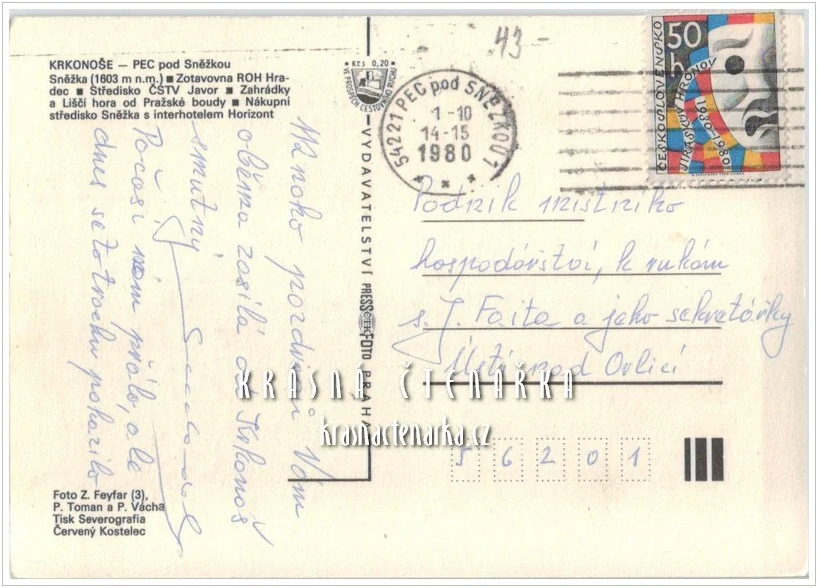 KRKONOŠE — PEC pod Sněžkou
Sněžka (1603 m n.m.) ■ Zotavovna ROH Hra-
dec ■ Středisko ČSTV Javor ■ Zahrádky
a Liščí hora od Pražské boudy ■ Nákupní
středisko Sněžka s interhotelem Horizont
Kčs 0,20
VE PROSPĚCH CESTOVNÍHO RUCHU
VYDAVATELSTVÍ PRESSFOTO PRAHA
ČTK
43-
54221 PEC pod SNĚŽKOU 1
1-10
14-15
1980
50
h
ČESKOSLOVENSKO
JIRÁSKŮV HRONOV
1930-1980
Mnoho pozdravů Vám
oběma zasílá z Krkonoš
smutný
Počasí nám přálo, ale
dnes se to trochu pokazilo
Podnik místního
hospodářství, k rukám
s. J. Faita a jeho sekretářky
Ústí nad Orlicí
56201
KRÁSNÁ ČTENÁŘKA
krasnactenarka.cz
Foto Z. Feyfar (3),
P. Toman a P. Vácha
Tisk Severografia
Červený Kostelec